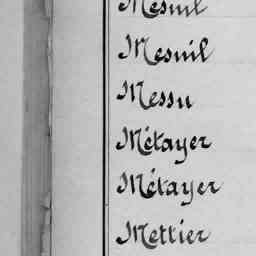 Mesnil
Mesnil
Messu
Métayer
Métayer
Mettier